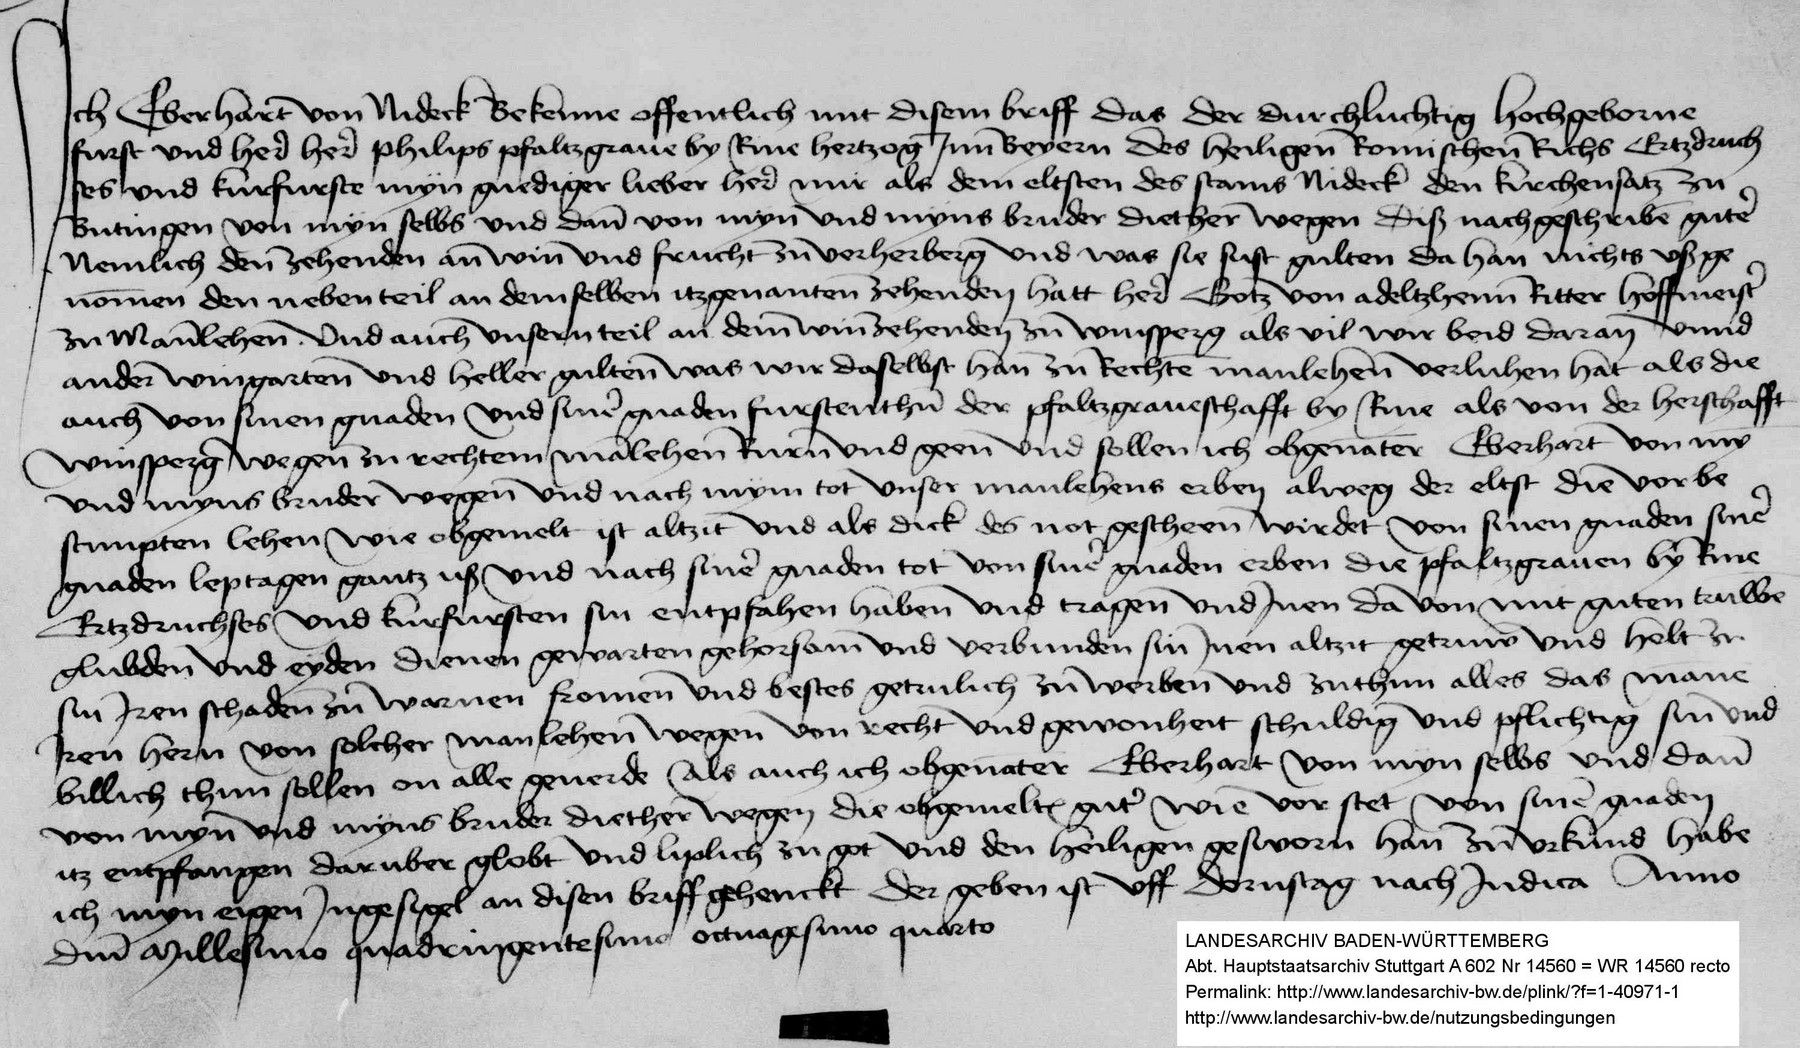 Ich Eberhart von Nideck Bekenne offentlich mit disem briff das der durchluchtig hochgeborne
furst und her her philips pfaltzgraue by Rine hertzog Inn Beyern des heiligen Romischen Richs Ertzdruch
ses und kurfurste myn gnediger lieber her mir als dem eltsten des stams Nideck den kirchensatz zu
Butingen von myn selbs und dan von myn und myns bruder diether wegen diß nachgeschriben guter
Nemlich den zehenden an win und frucht zu verherberg und was sie sust gulten da han nichts ußge
nomen den nebenteil an demselben itzgenanten zehenden hatt her Gotz von adeltzhein Ritter hoffmeister
zu Manlehen. Und auch unsern teil an dem winzehenden zu winsperg als vil wir beid daran unnd
andern wingarten und heller gulten was wir daselbst han zu Rechten manlehen verluhen hat als die
auch von sinen gnaden und siner gnaden furstenthum der pfaltzgraueschafft by Rine als von der herschafft
winsperg wegen zu rechtem manlehen Ruren und geen und sollen ich obgenater Eberhart von my
und myns bruder wegen und nach mym tot unser manlehens erben alweg der eltst die vorbe
stimpten lehen wie obgemelt ist altzit und als dick des not gescheen wirdet von sinen gnaden siner
gnaden leptagen gantz uß und nach siner gnaden tot von siner gnaden erben die pfaltzgrauen by Rine
Ertzdruchses und kurfursten sin entpfahen haben und tragen und Inen da von mit guten truwen
glubden und eyden dienen gewarten gehorsam und verbunden sin Inen altzit getruw und helt zu
sin Iren schaden zu warnen fromen und bestes getrulich zu werben und zuthun alles das mane
Iren hern von solcher manlehen wegen von recht und gewonheit schuldig und pflichtig sin und
billich thun sollen on alle geuerde Als auch ich obgenater Eberhart von myn selbs und dan
von myn und myns bruder diether wegen die obgemelt guter wie vor stet von siner gnaden
itz entpfangen daruber globt und liplich zu got und den heiligen gesworn han zu urkund habe
ich myn eigen Ingesigel an disen briff gehenckt der geben ist uff dornstag nach Iudica Anno
dni Millesimo quadringentesimo octuagesimo quarto
LANDESARCHIV BADEN-WÜRTTEMBERG
Abt. Hauptstaatsarchiv Stuttgart A 602 Nr 14560 = WR 14560 recto
Permalink: http://www.landesarchiv-bw.de/plink/?f=1-40971-1
http://www.landesarchiv-bw.de/nutzungsbedingungen